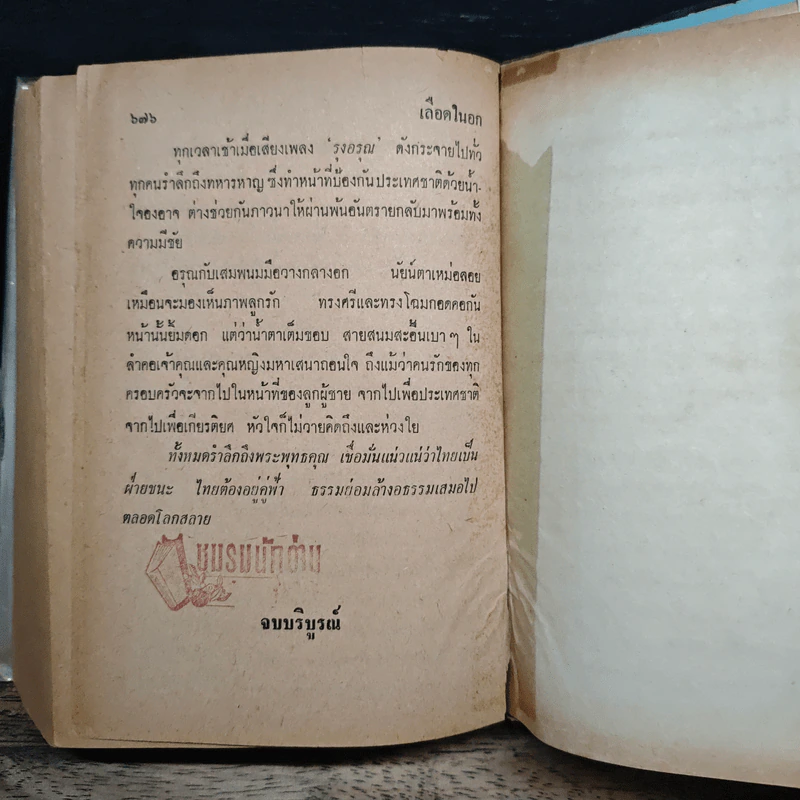 ๖๗๖
เลือดในอก
ทุกเวลาเช้าเมื่อเสียงเพลง 'รุงอรุณ' ดังกระจายไปทั่ว
ทุกคนรำลึกถึงทหารหาญ ซึ่งทำหน้าที่ป้องกันประเทศชาติด้วยน้ำ-
ใจองอาจ ต่างช่วยกันภาวนาให้ผ่านพ้นอันตรายกลับมาพร้อมทั้ง
ความมีชัย
อรุณกับเสมพนมมือวางกลางอก นัยน์ตาเหม่อลอย
เหมือนจะมองเห็นภาพลูกรัก ทรงศรีและทรงโฉมกอดคอกัน
หน้านั้นยิ้มดอก แต่ว่าน้ำตาเต็มขอบ สายสนมสะอื้นเบา ๆ ใน
ลำคอเจ้าคุณและคุณหญิงมหาเสนาถอนใจ ถึงแม้ว่าคนรักของทุก
ครอบครัวจะจากไปในหน้าที่ของลูกผู้ชาย จากไปเพื่อประเทศชาติ
จากไปเพื่อเกียรติยศ หัวใจก็ไม่วายคิดถึงและห่วงใย
ทั้งหมดรำลึกถึงพระพุทธคุณ เชื่อมั่นแน่วแน่ว่าไทยเป็น
ฝ่ายชนะ ไทยต้องอยู่คู่ฟ้า ธรรมย่อมล้างอธรรมเสมอไป
ตลอดโลกสลาย
ชมรมนักอ่าน
จบบริบูรณ์